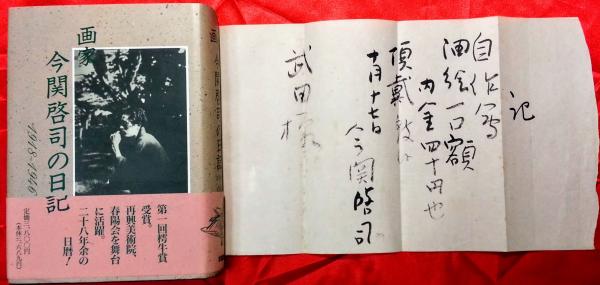 画家
今関啓司の日記
1918-1946
第一回樗牛賞
受賞。
再興美術院、
春陽会を舞台
に活躍。
二十八年余の
日暦!
画家 今関啓司の日記
記
自作写
油絵一口額
内金四十円也
頂戴致候
十月十七日
今関啓司
武田様